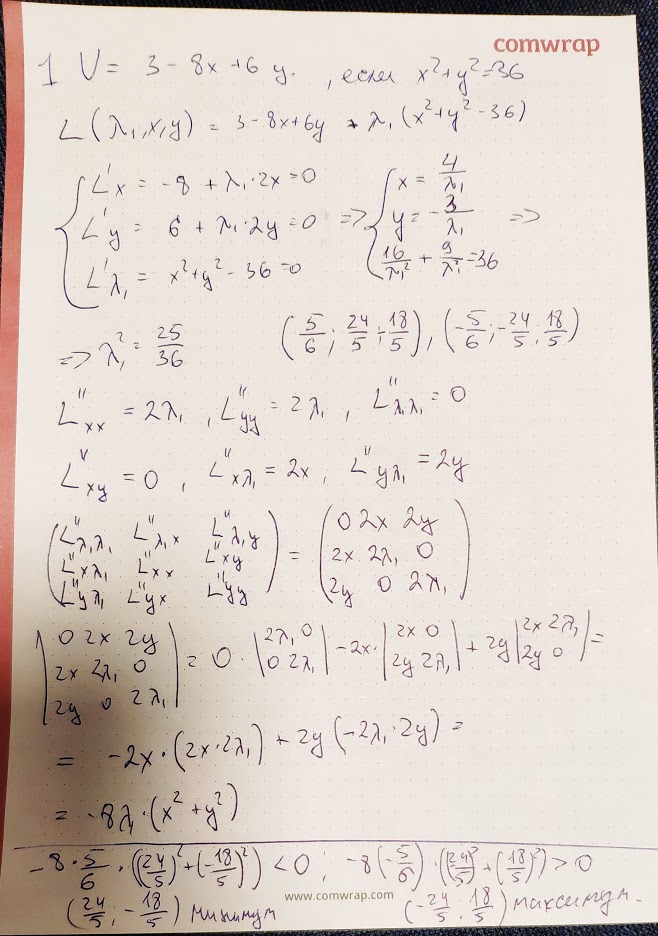 comwrap
1 U = 3 - 8x + 6y. , если x² + y² = 36
L(λ₁, x, y) = 3 - 8x + 6y + λ₁(x² + y² - 36)
{ L'x = -8 + λ₁·2x = 0
L'y = 6 + λ₁·2y = 0
L'λ₁ = x² + y² - 36 = 0
=> { x = 4/λ₁
y = -3/λ₁
16/λ₁² + 9/λ₁² = 36 =>
=> λ₁² = 25/36 (5/6; 24/5; -18/5), (-5/6; -24/5; 18/5)
L''xx = 2λ₁ , L''yy = 2λ₁ , L''λ₁λ₁ = 0
L''xy = 0 , L''xλ₁ = 2x , L''yλ₁ = 2y
( L''λ₁λ₁ L''λ₁x L''λ₁y ) = ( 0 2x 2y )
( L''xλ₁ L''xx L''xy ) ( 2x 2λ₁ 0 )
( L''yλ₁ L''yx L''yy ) ( 2y 0 2λ₁ )
| 0 2x 2y |
| 2x 2λ₁ 0 | = 0 · |2λ₁ 0; 0 2λ₁| - 2x · |2x 0; 2y 2λ₁| + 2y |2x 2λ₁; 2y 0| =
| 2y 0 2λ₁ |
= -2x · (2x·2λ₁) + 2y (-2λ₁·2y) =
= -8λ₁·(x² + y²)
-8 · 5/6 · ((24/5)² + (-18/5)²) < 0 ; -8(-5/6) · ((-24/5)² + (18/5)²) > 0
(24/5; -18/5) минимум (-24/5; 18/5) максимум.
www.comwrap.com